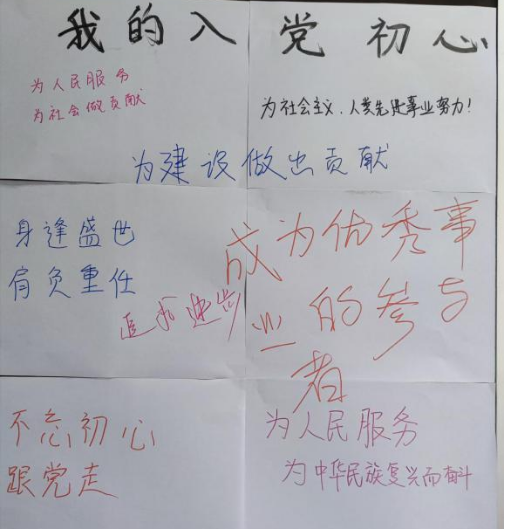 我的入党初心
为人民服务
为社会做贡献
为社会主义、人类先进事业努力!
为建设做出贡献
身逢盛世
肩负重任
追求进步
成为优秀事
业的参与
者
不忘初心
跟党走
为人民服务
为中华民族复兴而奋斗